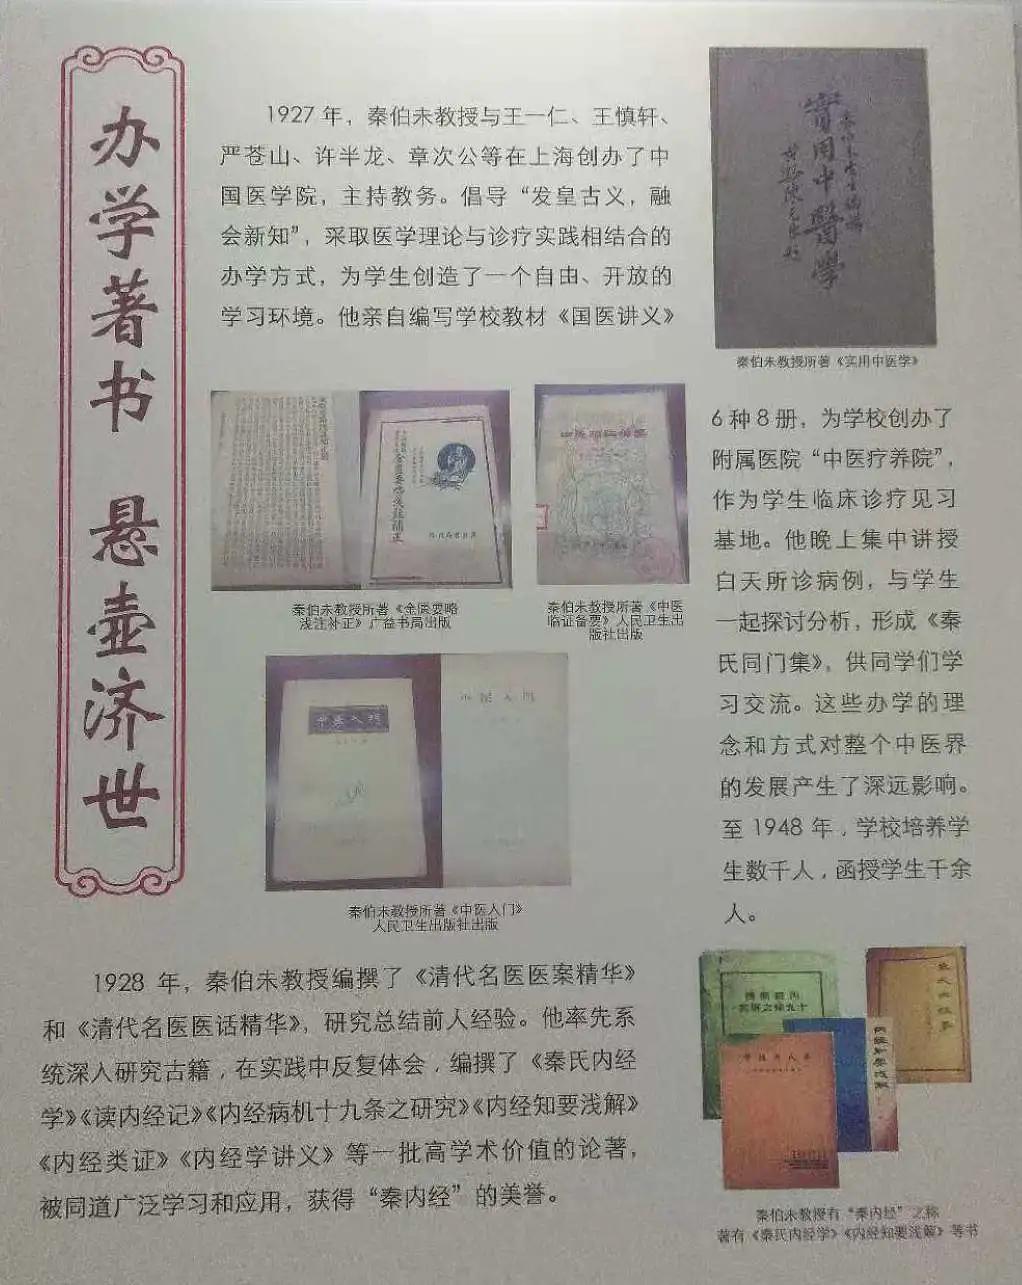 办学著书 悬壶济世
1927 年，秦伯未教授与王一仁、王慎轩、
严苍山、许半龙、章次公等在上海创办了中
国医学院，主持教务。倡导“发皇古义，融
会新知”，采取医学理论与诊疗实践相结合的
办学方式，为学生创造了一个自由、开放的
学习环境。他亲自编写学校教材《国医讲义》
實用中醫學
秦伯未教授所著《实用中医学》
6 种 8 册，为学校创办了
附属医院“中医疗养院”，
作为学生临床诊疗见习
基地。他晚上集中讲授
白天所诊病例，与学生
一起探讨分析，形成《秦
氏同门集》，供同学们学
习交流。这些办学的理
念和方式对整个中医界
的发展产生了深远影响。
至 1948 年，学校培养学
生数千人，函授学生千余
人。
秦伯未教授所著《金匮要略
浅注补正》广益书局出版
秦伯未教授所著《中医
临证备要》人民卫生出
版社出版
中医入門
秦伯未教授所著《中医入门》
人民卫生出版社出版
1928 年，秦伯未教授编撰了《清代名医医案精华》
和《清代名医医话精华》，研究总结前人经验。他率先系
统深入研究古籍，在实践中反复体会，编撰了《秦氏内经
学》《读内经记》《内经病机十九条之研究》《内经知要浅解》
《内经类证》《内经学讲义》等一批高学术价值的论著，
被同道广泛学习和应用，获得“秦内经”的美誉。
秦伯未教授有“秦内经”之称
著有《秦氏内经学》《内经知要浅解》等书